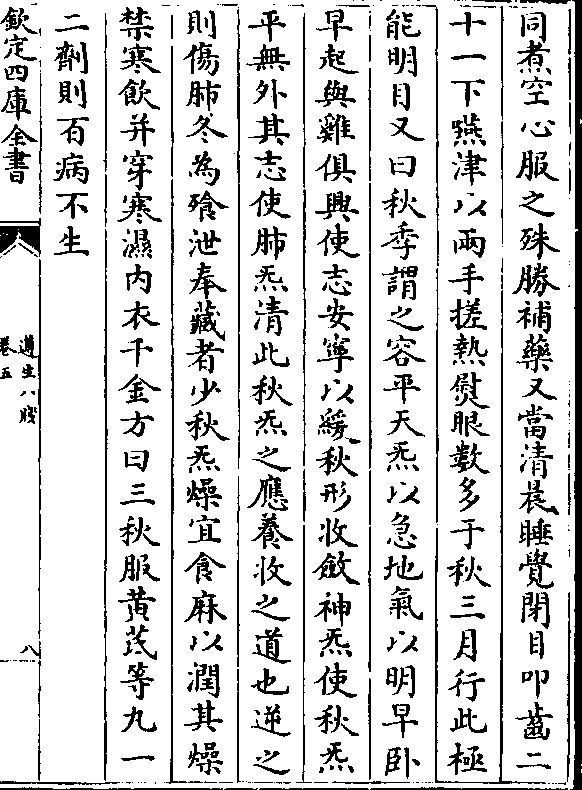 同煮空心服之殊勝補藥又當清晨睡覺閉目叩齒二
十一下嚥津以兩手搓熱熨眼數多于秋三月行此極
能明目又曰秋季謂之容平天炁以急地氣以明早卧
早起與雞俱興使志安寧以緩秋形收斂神炁使秋炁
平無外其志使肺炁清此秋炁之應養收之道也逆之
則傷肺冬為飱泄奉藏者少秋炁燥宜食麻以潤其燥
禁寒飲并穿寒濕内衣千金方曰三秋服黄茋等丸一
二劑則百病不生
欽定四庫全書
遵生八牋
卷五
八